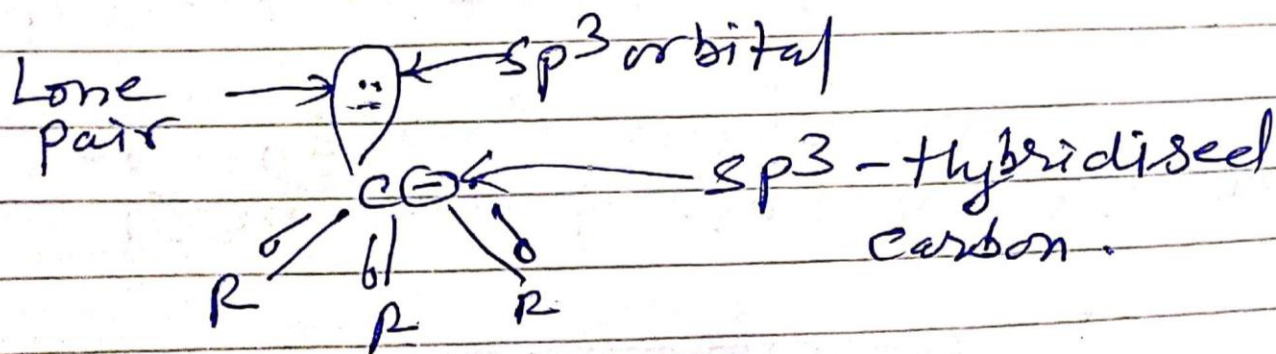 Lone → sp³ orbital
pair
C⊖ ← sp³ - Hybridised
carbon.
σ σ σ
R R R